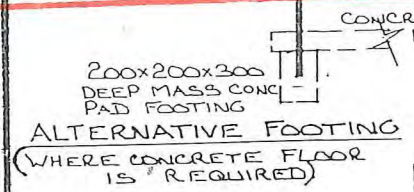 CONCR
200x200x300
DEEP MASS CONC
PAD FOOTING
ALTERNATIVE FOOTING
(WHERE CONCRETE FLOOR
IS REQUIRED)